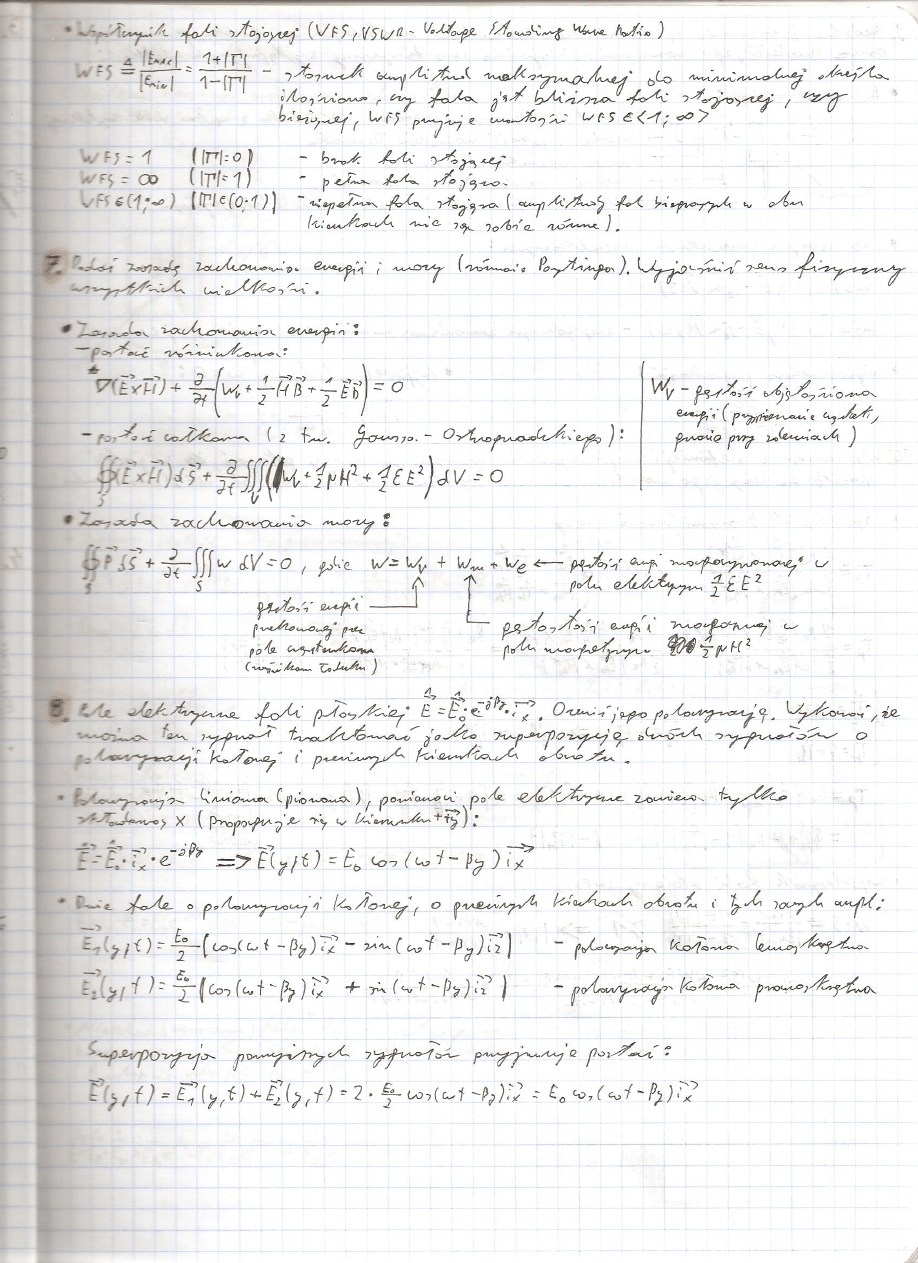 • Współczynnik fali stojącej (WFS, VSWR - Voltage Standing Wave Ratio)
WFS ≜ |Emax|/|Emin| = (1+|Γ|)/(1-|Γ|) - stosunek amplitud maksymalnej do minimalnej określa
ilościowo, czy fala jest bliższa fali stojącej, czy
bieżącej, WFS przyjmuje wartości WFS ∈ <1; ∞>
WFS = 1 (|Γ|=0) - brak fali stojącej
WFS = ∞ (|Γ|=1) - pełna fala stojąca.
WFS ∈ (1; ∞) (|Γ| ∈ (0;1)) - niepełna fala stojąca (amplitudy fal bieżących w obu
kierunkach nie są sobie równe).
7. Podać zasadę zachowania energii i mocy (równanie Poyntinga). Wyjaśnić sens fizyczny
wszystkich wielkości.
• Zasada zachowania energii:
- postać różniczkowa:
∇(E⃗×H⃗) + ∂/∂t (Wv + 1/2 H⃗B⃗ + 1/2 E⃗D⃗) = 0
Wv - gęstość objętościowa
energii (przyspieszanie cząstek,
grzanie przy zderzeniach)
- postać całkowa (z tw. Gaussa - Ostrogradskiego):
∯S (E⃗×H⃗) dS⃗ + ∂/∂t ∭V (Wv + 1/2 μH² + 1/2 εE²) dV = 0
• Zasada zachowania mocy:
∯S P⃗ dS⃗ + ∂/∂t ∭S w dV = 0, gdzie w = Wv + Wm + We ← gęstość energii zmagazynowanej w
polu elektrycznym 1/2 εE²
gęstość energii
przekazanej przez
pole cząstkom
(nośnikom ładunku)
gęstość energii zmagazynowanej w
polu magnetycznym 1/2 μH²
8. Pole elektryczne fali płaskiej E⃗ = E⃗₀·e^(-jβy)·i⃗x. Określ jego polaryzację. Wykazać, że
można ten sygnał traktować jako superpozycję dwóch sygnałów o
polaryzacji kołowej i przeciwnych kierunkach obrotu.
• Polaryzacja liniowa (pionowa), ponieważ pole elektryczne zawiera tylko
składową x (propaguje się w kierunku +i⃗y):
E⃗ = E⃗₀·i⃗x·e^(-jβy) => E⃗(y,t) = E₀ cos(ωt - βy) i⃗x
• Dwie fale o polaryzacji kołowej, o przeciwnych kierunkach obrotu i tych samych ampl:
E⃗₁(y,t) = E₀/2 [cos(ωt - βy) i⃗x - sin(ωt - βy) i⃗z] - polaryzacja kołowa lewoskrętna
E⃗₂(y,t) = E₀/2 [cos(ωt - βy) i⃗x + sin(ωt - βy) i⃗z] - polaryzacja kołowa prawoskrętna
Superpozycja powyższych sygnałów przyjmuje postać:
E⃗(y,t) = E⃗₁(y,t) + E⃗₂(y,t) = 2·E₀/2 cos(ωt - βy) i⃗x = E₀ cos(ωt - βy) i⃗x